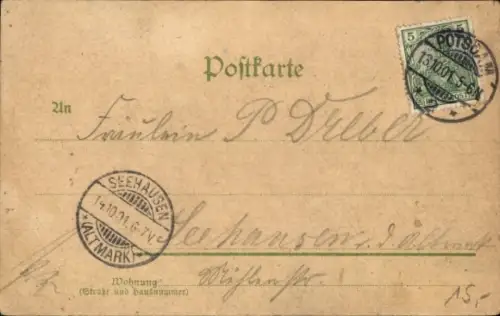 5 5
POTSDAM
13.10.01. 5-6 N.
Postkarte
An
Fräulein P Dreber
SEEHAUSEN
14.10.01. 6-7 V.
*(ALTMARK)*
Seehausen i. d. Altmark
Mühlenstr.
Wohnung
(Straße und Hausnummer)
15,-